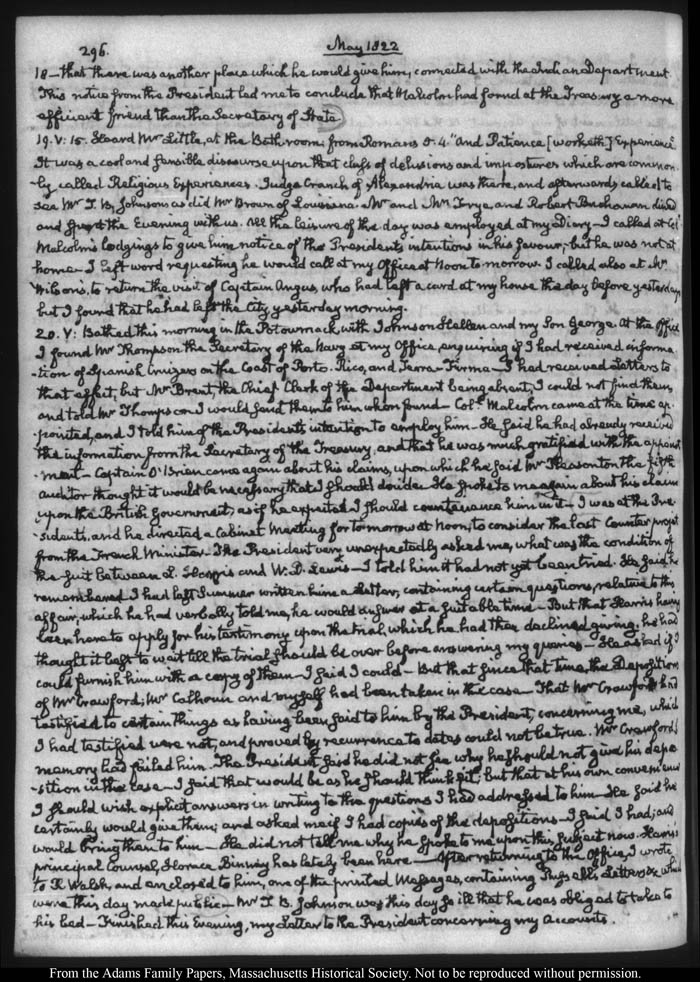 296.
May 1822
18 — that there was another place which he would give him, connected with the Indian Department.
This notice from the President led me to conclude that Malcolm had found at the Treasury a more
efficient friend than the Secretary of State.
19. V: 15. Heard Mr Little, at the Bath room from Romans 5. 4. "And Patience [worketh] Experience"
It was a cool and sensible discourse upon that class of delusions and impostures which are common-
-ly called Religious Experiences. Judge Cranch of Alexandria was there, and afterwards called to
see Mr T. B. Johnson as did Mr Brown of Louisiana. Mr and Mrs Frye, and Robert Buchanan dined
and spent the Evening with us. All the leisure of the day was employed at my Diary — I called at Col.
Malcolm's lodgings to give him notice of the President's intentions in his favour; but he was not at
home — I left word requesting he would call at my Office at Noon to-morrow. I called also at Mr
Wilson's, to return the visit of Captain Angus, who had left a card at my house the day before yesterday
but I found that he had left the City yesterday morning.
20. V: Bathed this morning in the Potowmack, with Johnson Hellen and my Son George. At the Office
I found Mr Thompson the Secretary of the Navy at my Office, enquiring if I had received informa-
-tion of Spanish Cruizers on the Coast of Porto-Rico, and Terra-Firma — I had received Letters to
that effect, but Mr Brent, the Chief Clerk of the Department being absent, I could not find them,
and told Mr Thompson I would send them to him when found — Coll. Malcolm came at the time ap-
-pointed, and I told him of the President's intention to employ him — He said he had already received
the information from the Secretary of the Treasury, and that he was much gratified with the appoint
-ment — Captain O'Brien came again about his claims, upon which he said Mr Pleasonton the fifth
auditor thought it would be necessary that I should decide — He spoke to me again about his claim
upon the British Government, as if he expected I should countenance him in it — I was at the Pre-
-sident's, and he directed a Cabinet Meeting for to-morrow at Noon, to consider the last Counter projet
from the French Minister. The President very unexpectedly asked me, what was the condition of
the suit between L. Harris and W. D. Lewis — I told him it had not yet been tried. He said he
remembered I had last Summer written him a Letter, containing certain questions, relative to this
affair, which he had verbally told me, he would answer at a suitable time — But that Harris having
been here to apply for his testimony upon the trial, which he had then declined giving, he had
thought it best to wait till the trial should be over before answering my queries — He asked if I
could furnish him with a copy of them — I said I could — But that since that time, the Depositions
of Mr Crawford, Mr Calhoun and myself had been taken in the case — That Mr Crawford had
testified to certain things as having been said to him by the President, concerning me, which
I had testified were not, and proved by recurrence to dates could not be true. Mr Crawford's
memory had failed him. The President said he did not see why he should not give his depo
-sition in the case — I said that would be as he should think fit; but that at his own convenience
I should wish explicit answers in writing to the questions I had addressed to him — He said he
certainly would give them; and asked me if I had copies of the depositions — I said I had; and
would bring them to him — He did not tell me why he spoke to me upon this subject now. Harris's
principal Counsel, Horace Binney has lately been here — After returning to the Office, I wrote
to R. Walsh, and enclosed to him, one of the printed Messages, containing Russell's Letters &c which
were this day made public — Mr T. B. Johnson was this day so ill that he was obliged to take to
his bed — Finished this Evening, my Letter to the President concerning my Accounts.
From the Adams Family Papers, Massachusetts Historical Society. Not to be reproduced without permission.